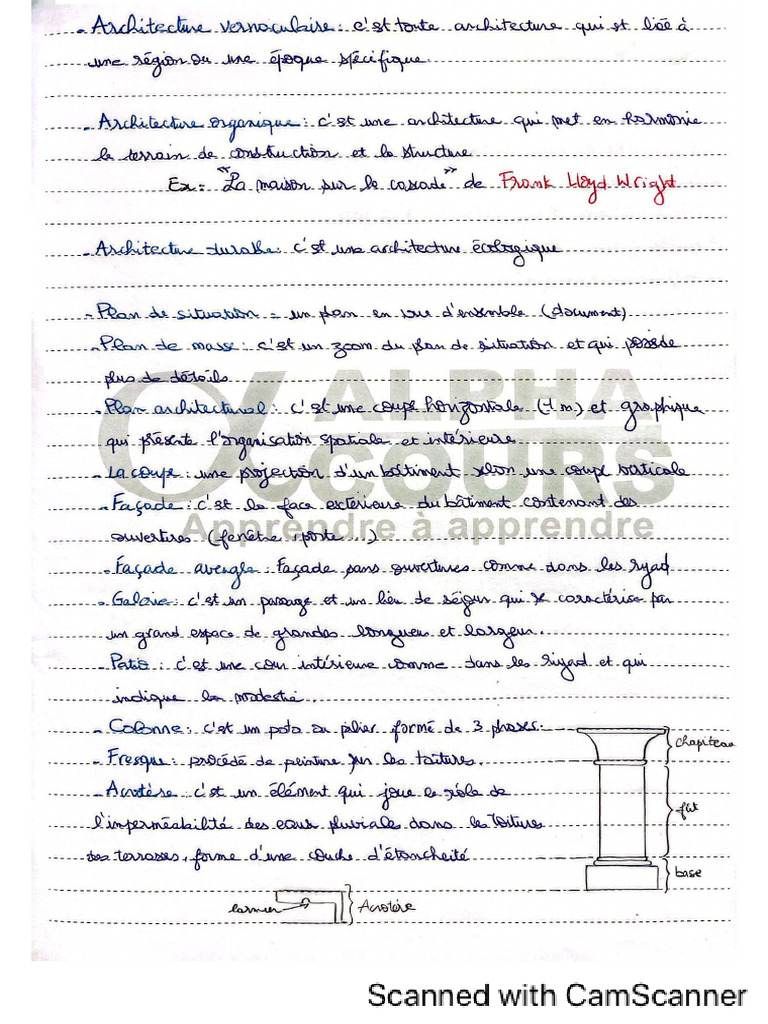 - Architecture vernaculaire : c'est toute architecture qui est liée à
une région ou une époque spécifique.
- Architecture organique : c'est une architecture qui met en harmonie
le terrain de construction et la structure
Ex : "La maison sur la cascade" de Frank Lloyd Wright
- Architecture durable : c'est une architecture écologique
- Plan de situation = un plan en vue d'ensemble (document)
- Plan de masse : c'est un zoom du plan de situation et qui possède
plus de détails
- Plan architectural : c'est une coupe horizontale (1 m) et graphique
qui présente l'organisation spatiale et intérieure
- La coupe : une projection d'un bâtiment selon une coupe verticale
- Façade : c'est la face extérieure du bâtiment contenant des
ouvertures (fenêtre, porte...)
- Façade aveugle : Façade sans ouvertures comme dans les ryad
- Galerie : c'est un passage et un lieu de séjour qui se caractérise par
un grand espace de grandes longueur et largeur.
- Patio : c'est une cour intérieure comme dans les riyad et qui
indique la modestie.
- Colonne : c'est un poto ou pilier formé de 3 phases :
- Fresque : procédé de peinture sur les toitures.
- Acrotère : c'est un élément qui joue le rôle de
l'imperméabilité des eaux pluviales dans les toitures
des terrasses, forme d'une couche d'étancheité
chapiteau
fût
base
larmier
Acrotère
ALPHA
COURS
Apprendre à apprendre
Scanned with CamScanner